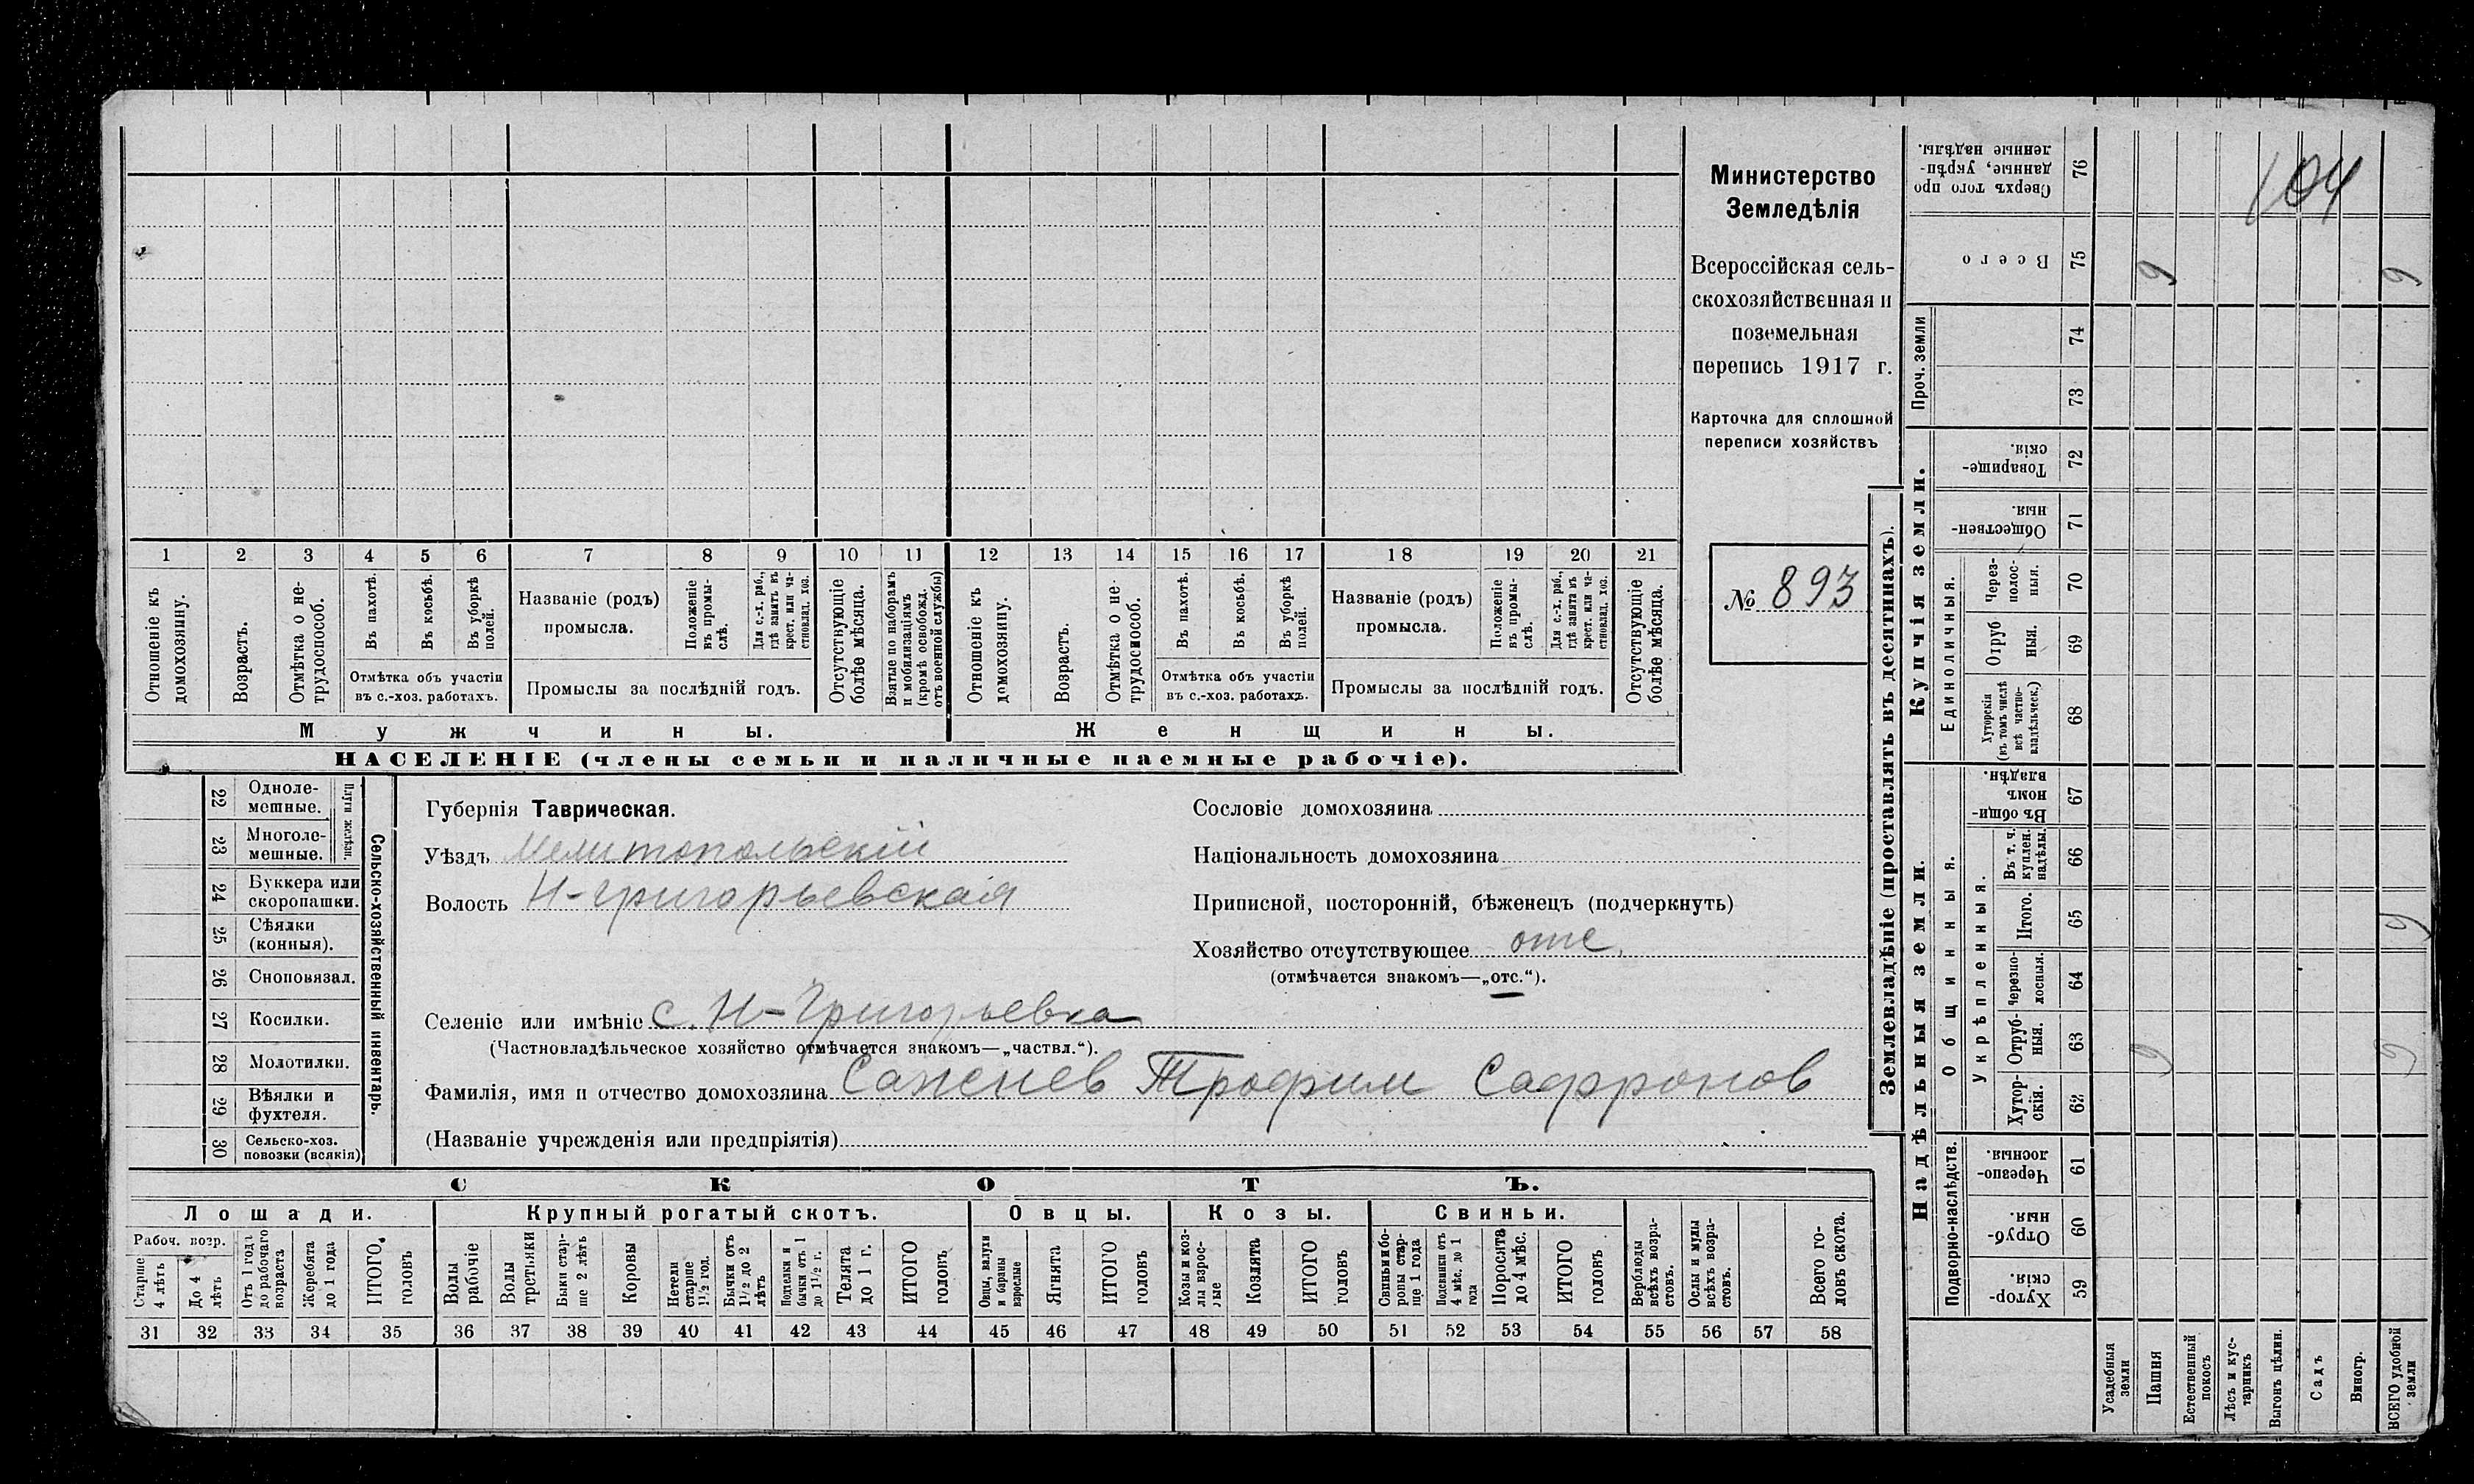 1 2 3 4 5 6 7 8 9 10 11 12 13 14 15 16 17 18 19 20 21
Отношеніе къ домохозяину.
Возрастъ.
Отмѣтка о не-
трудоспособ.
Въ пахотѣ.
Въ косьбѣ.
Въ уборкѣ
полей.
Отмѣтка объ участіи
въ с.-хоз. работахъ.
Названіе (родъ)
промысла.
Положеніе
въ промы-
слѣ.
Для с.-х. раб.,
гдѣ занятъ въ
крест. или ча-
стновлад. хоз.
Промыслы за послѣдній годъ.
Отсутствующіе
болѣе мѣсяца.
Взятые по наборамъ
и мобилизаціямъ
(кромѣ освобожд.
отъ военной службы)
Отношеніе къ
домохозяину.
Возрастъ.
Отмѣтка о не-
трудоспособ.
Въ пахотѣ.
Въ косьбѣ.
Въ уборкѣ
полей.
Отмѣтка объ участіи
въ с.-хоз. работахъ.
Названіе (родъ)
промысла.
Положеніе
въ промы-
слѣ.
Для с.-х. раб.,
гдѣ занята въ
крест. или ча-
стновлад. хоз.
Промыслы за послѣдній годъ.
Отсутствующіе
болѣе мѣсяца.
Мужчины.
Женщины.
НАСЕЛЕНІЕ (члены семьи и наличные наемные рабочіе).
Министерство
Земледѣлія
Всероссійская сель-
скохозяйственная и
поземельная
перепись 1917 г.
Карточка для сплошной
переписи хозяйствъ
№ 893
22 Одноле-
мешные.
23 Многоле-
мешные.
Плуги желѣзн.
24 Буккера или
скоропашки.
25 Сѣялки
(конныя).
26 Сноповязал.
27 Косилки.
28 Молотилки.
29 Вѣялки и
фухтеля.
30 Сельско-хоз.
повозки (всякія)
Сельско-хозяйственный инвентарь.
Губернія Таврическая.
Уѣздъ Мелитопольскій
Волость Н-Григорьевская
Сословіе домохозяина
Національность домохозяина
Приписной, посторонній, бѣженецъ (подчеркнуть)
Хозяйство отсутствующее отс.
(отмѣчается знакомъ—„отс.“).
Селеніе или имѣніе с. Н-Григорьевка
(Частновладѣльческое хозяйство отмѣчается знакомъ—„частвл.“).
Фамилія, имя и отчество домохозяина Саженев Трофим Сафронов
(Названіе учрежденія или предпріятія)
СКОТЪ.
Лошади.
Крупный рогатый скотъ.
Овцы.
Козы.
Свиньи.
Рабоч. возр.
Старше
4 лѣтъ
До 4
лѣтъ
Отъ 1 года
до рабочаго
возраста
Жеребята
до 1 года
ИТОГО
головъ
Волы
рабочіе
Волы
третьяки
Быки стар-
ше 2 лѣтъ
Коровы
Нетели
старше
1½ год.
Бычки отъ
1½ до 2
лѣтъ
Подтелки и
бычки отъ 1
до 1½ г.
Телята
до 1 г.
ИТОГО
головъ
Овцы, валухи
и бараны
взрослые
Ягнята
ИТОГО
головъ
Козы и коз-
лы взрос-
лые
Козлята
ИТОГО
головъ
Свиньи и бо-
ровы стар-
ше 1 года
Подсвинки отъ
4 мѣс. до 1
года
Поросята
до 4 мѣс.
ИТОГО
головъ
Верблюды
всѣхъ возра-
стовъ.
Ослы и мулы
всѣхъ возра-
стовъ.
Всего го-
ловъ скота.
31 32 33 34 35 36 37 38 39 40 41 42 43 44 45 46 47 48 49 50 51 52 53 54 55 56 57 58
Землевладѣніе (проставлять въ десятинахъ).
Купчія земли.
Надѣльныя земли.
Сверхъ того про
данные, укрѣп-
ленные надѣлы.
76
104
Всего
75
9
9
Проч. земли
74
73
Товарище-
скія.
72
Обществен-
ныя.
71
Единоличныя.
Через-
полос-
ныя.
70
Отруб
ныя.
69
Хуторскія
(въ томъ числѣ
всѣ частно-
владѣльческ.)
68
Общинныя.
Въ общи-
номъ
владѣн.
67
Укрѣпленныя.
Въ т. ч.
куплен.
надѣлы.
66
Итого.
65
9
Черезпо-
лосныя.
64
Отруб-
ныя.
63
9
9
Хутор-
скія.
62
Подворно-наслѣдств.
Черезпо-
лосныя.
61
Отруб-
ныя.
60
Хутор-
скія.
59
Усадебныя
земли
Пашня
Естественный
покосъ
Лѣсъ и кус-
тарникъ
Выгонъ цѣлин.
Садъ
Виногр.
ВСЕГО удобной
земли